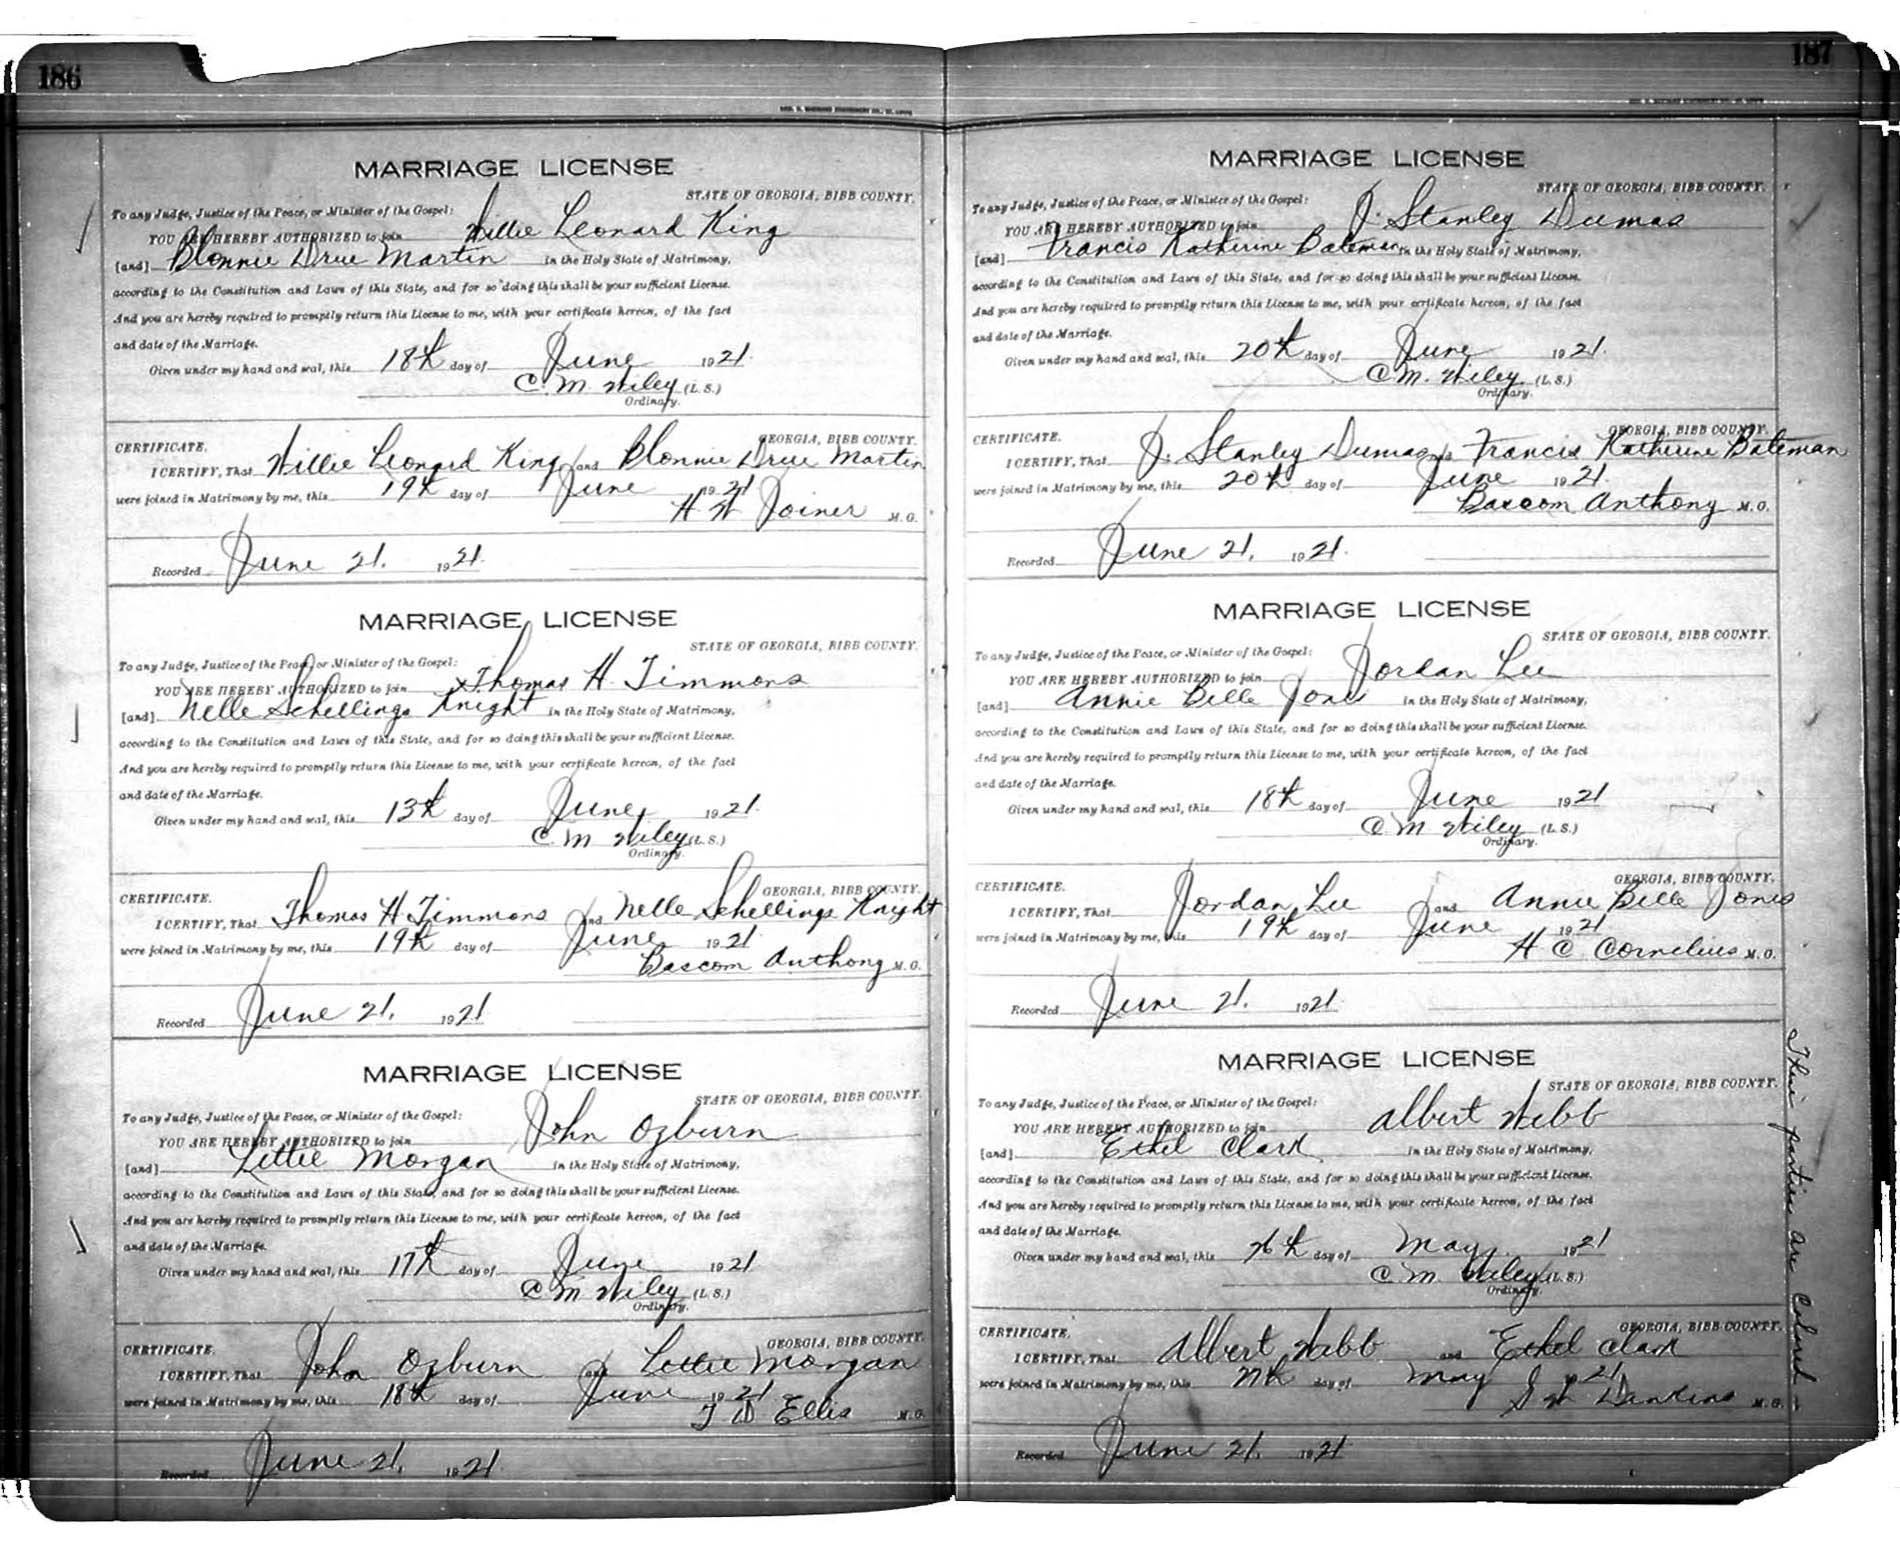 186
MARRIAGE LICENSE
STATE OF GEORGIA, BIBB COUNTY.
To any Judge, Justice of the Peace, or Minister of the Gospel:
YOU ARE HEREBY AUTHORIZED to join Willie Leonard King
[and] Blonnie Drue Martin in the Holy State of Matrimony,
according to the Constitution and Laws of this State, and for so doing this shall be your sufficient License.
And you are hereby required to promptly return this License to me, with your certificate hereon, of the fact
and date of the Marriage.
Given under my hand and seal, this 18th day of June 1921
C. M. Wiley (L.S.)
Ordinary.
CERTIFICATE. GEORGIA, BIBB COUNTY.
I CERTIFY, That Willie Leonard King and Blonnie Drue Martin
were joined in Matrimony by me, this 19th day of June 1921
H W Joiner M.G.
Recorded June 21. 1921.
MARRIAGE LICENSE
STATE OF GEORGIA, BIBB COUNTY.
To any Judge, Justice of the Peace, or Minister of the Gospel:
YOU ARE HEREBY AUTHORIZED to join Thomas H. Timmons
[and] Nelle Schellings Knight in the Holy State of Matrimony,
according to the Constitution and Laws of this State, and for so doing this shall be your sufficient License.
And you are hereby required to promptly return this License to me, with your certificate hereon, of the fact
and date of the Marriage.
Given under my hand and seal, this 13th day of June, 1921.
C. M Wiley (L.S.)
Ordinary.
CERTIFICATE. GEORGIA, BIBB COUNTY.
I CERTIFY, That Thomas H Timmons and Nelle Schellings Knight
were joined in Matrimony by me, this 19th day of June 1921
Bascom Anthony M.G.
Recorded June 21. 1921
MARRIAGE LICENSE
STATE OF GEORGIA, BIBB COUNTY.
To any Judge, Justice of the Peace, or Minister of the Gospel:
YOU ARE HEREBY AUTHORIZED to join John Ozburn
[and] Lettie Morgan in the Holy State of Matrimony,
according to the Constitution and Laws of this State, and for so doing this shall be your sufficient License.
And you are hereby required to promptly return this License to me, with your certificate hereon, of the fact
and date of the Marriage.
Given under my hand and seal, this 17th day of June 1921
C M Wiley (L.S.)
Ordinary.
CERTIFICATE. GEORGIA, BIBB COUNTY.
I CERTIFY, That John Ozburn and Lettie Morgan
were joined in Matrimony by me, this 18th day of June 1921
T D Ellis M.G.
Recorded June 21. 1921.
187
MARRIAGE LICENSE
STATE OF GEORGIA, BIBB COUNTY.
To any Judge, Justice of the Peace, or Minister of the Gospel:
YOU ARE HEREBY AUTHORIZED to join J. Stanley Dumas
[and] Francis Katherine Bateman in the Holy State of Matrimony,
according to the Constitution and Laws of this State, and for so doing this shall be your sufficient License.
And you are hereby required to promptly return this License to me, with your certificate hereon, of the fact
and date of the Marriage.
Given under my hand and seal, this 20th day of June 1921.
C M. Wiley (L.S.)
Ordinary.
CERTIFICATE. GEORGIA, BIBB COUNTY.
I CERTIFY, That J. Stanley Dumas and Francis Katherine Bateman
were joined in Matrimony by me, this 20th day of June 1921.
Bascom Anthony M.G.
Recorded June 21. 1921.
MARRIAGE LICENSE
STATE OF GEORGIA, BIBB COUNTY.
To any Judge, Justice of the Peace, or Minister of the Gospel:
YOU ARE HEREBY AUTHORIZED to join Jordan Lee
[and] Annie Belle Jones in the Holy State of Matrimony,
according to the Constitution and Laws of this State, and for so doing this shall be your sufficient License.
And you are hereby required to promptly return this License to me, with your certificate hereon, of the fact
and date of the Marriage.
Given under my hand and seal, this 18th day of June 1921
C. M Wiley (L.S.)
Ordinary.
CERTIFICATE. GEORGIA, BIBB COUNTY.
I CERTIFY, That Jordan Lee and Annie Belle Jones
were joined in Matrimony by me, this 19th day of June 1921
H C Cornelius M.G.
Recorded June 21. 1921
MARRIAGE LICENSE
STATE OF GEORGIA, BIBB COUNTY.
To any Judge, Justice of the Peace, or Minister of the Gospel:
YOU ARE HEREBY AUTHORIZED to join Albert Webb
[and] Ethel Clark in the Holy State of Matrimony,
according to the Constitution and Laws of this State, and for so doing this shall be your sufficient License.
And you are hereby required to promptly return this License to me, with your certificate hereon, of the fact
and date of the Marriage.
Given under my hand and seal, this 26th day of May, 1921
C M Wiley (L.S.)
Ordinary.
CERTIFICATE. GEORGIA, BIBB COUNTY.
I CERTIFY, That Albert Webb and Ethel Clark
were joined in Matrimony by me, this 27th day of May 1921
M.G.
Recorded June 21. 1921
parties are Colored